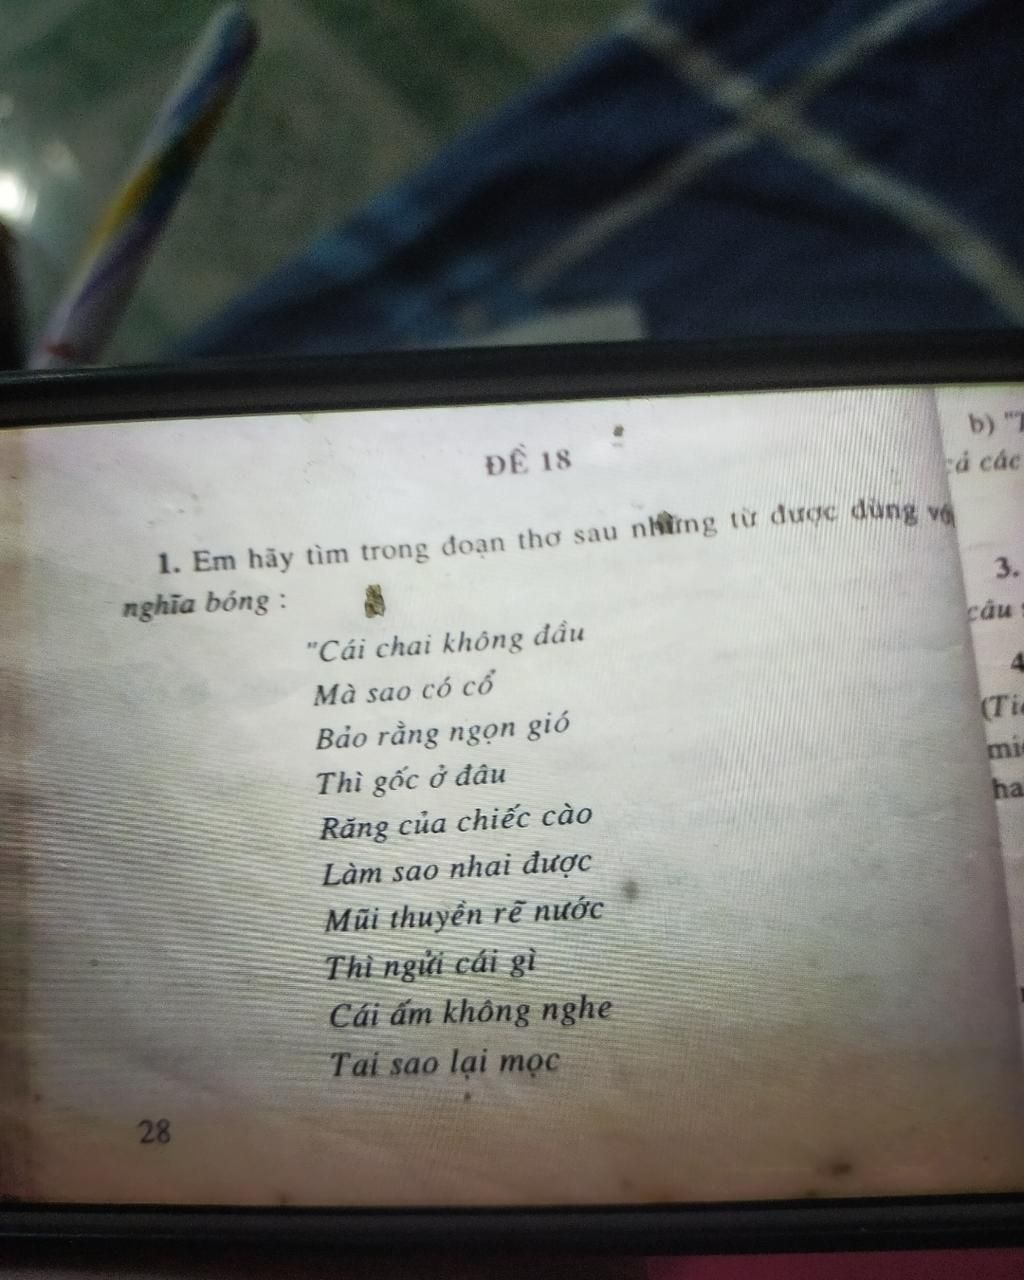 ĐỀ 18
1. Em hãy tìm trong đoạn thơ sau những từ được dùng
nghĩa bóng :
"Cái chai không đầu
Mà sao có cổ
Bảo rằng ngọn gió
Thì gốc ở đâu
Răng của chiếc cào
Làm sao nhai được
Mũi thuyền rẽ nước
Thì ngửi cái gì
Cái ấm không nghe
Tai sao lại mọc
28
b)
cả các
3.
câu
4